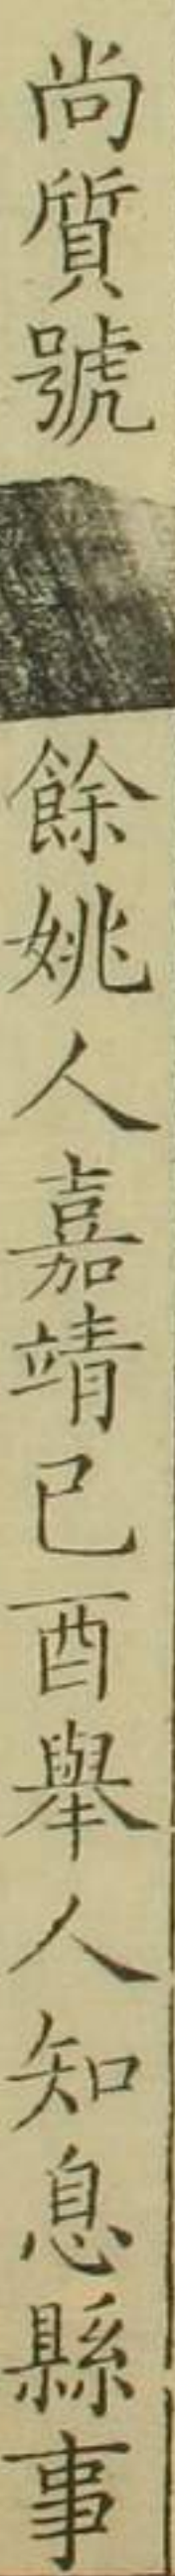 尚質號餘姚人嘉靖己酉舉人知息縣事